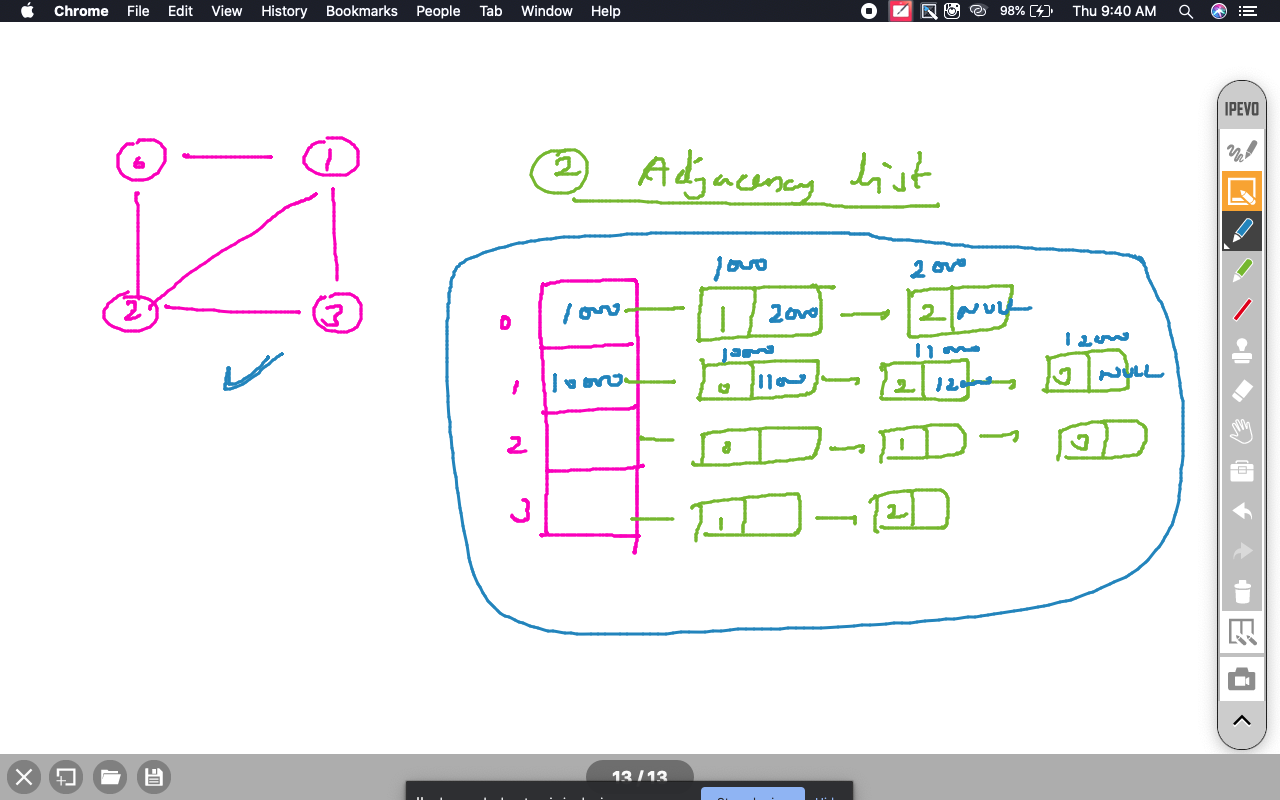 Chrome File Edit View History Bookmarks People Tab Window Help 98% Thu 9:40 AM
IPEVO
6 1
2 3
2 Adjacency list
1000 2000
0 1000 1 2000 2 NULL
11000 12000
1 10000 0 1100 2 1200 3 NULL
2 0 1 3
3 1 2
13 / 13